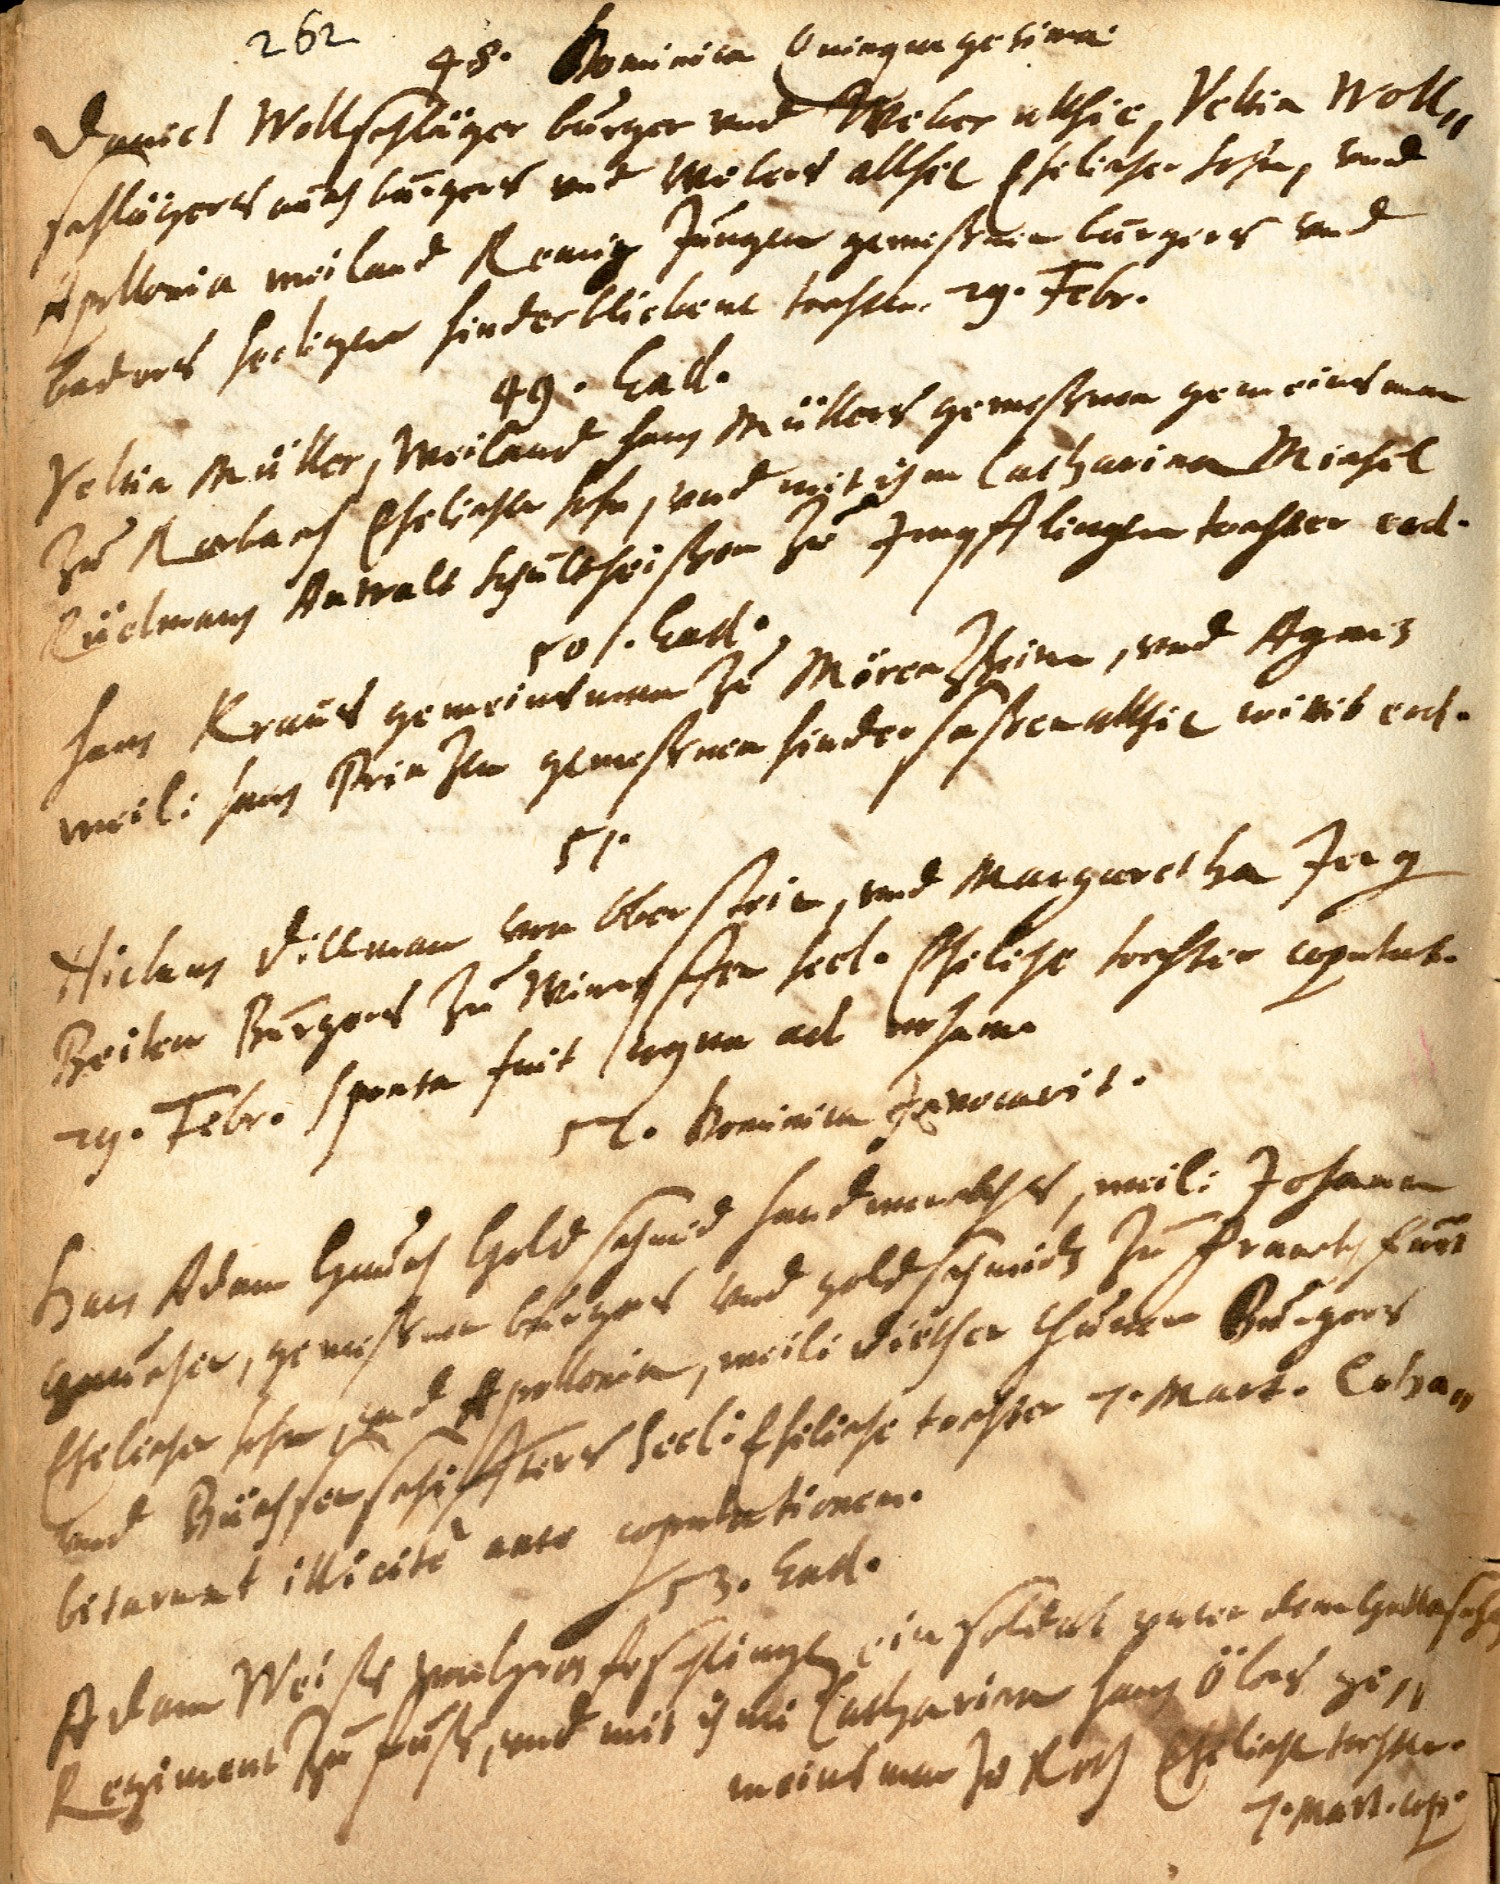 262
48. Dominica Quinquagesima
Daniel Wollschläger burger und Weber allhie, Veltin Woll„
schlägers auch burgers und Webers allhie Ehelicher sohn, und
Apollonia weiland Remig Jungen gewesßnen burgers und
baders seeligen hinderbliebene tochter. 29. Febr.
49. Ead.
Veltin Müller, Weiland Hans Müllers gewesßnen gemeinsman
zu Rorbach Ehelicher sohn, und mit ihm Catharina Michel
Rüelmans Anwalt Schultheißen zu Impfflingen tochter ead.
50. Ead.
Hans Kraus gemeinsman zu Mörtzheim, und Agnes
weil: Hans Printzen gewesßnen hindersaßen allhie wittib ead.
51.
Niclaus Dillman von Oberstein, und Margaretha Jerg
Beilen Burgers zu seel. Eheliche tochter copulat.
29. Febr. sponsa fuit ad
52. Dominica Invocavit.
Hans Adam Gauch Goldschmid handwercks, weil: Johann
gauchen, gewesßnen burgers und goldschmids zu Franckfurt
Ehelicher sohn, und Apollonia, weil: Diether Burgers
und Büchsenschiffters seel: Eheliche tochter 7. Mart. Coha„
bitarunt illicitè ante copulationem.
53. Ead.
Adam Weiß ein soldat unter dem
Regiment zu fuß, und mit ihm Catharina Hans Öbers ge„
meinsman zu Roth Eheliche tochter.
7. Mart. cop.